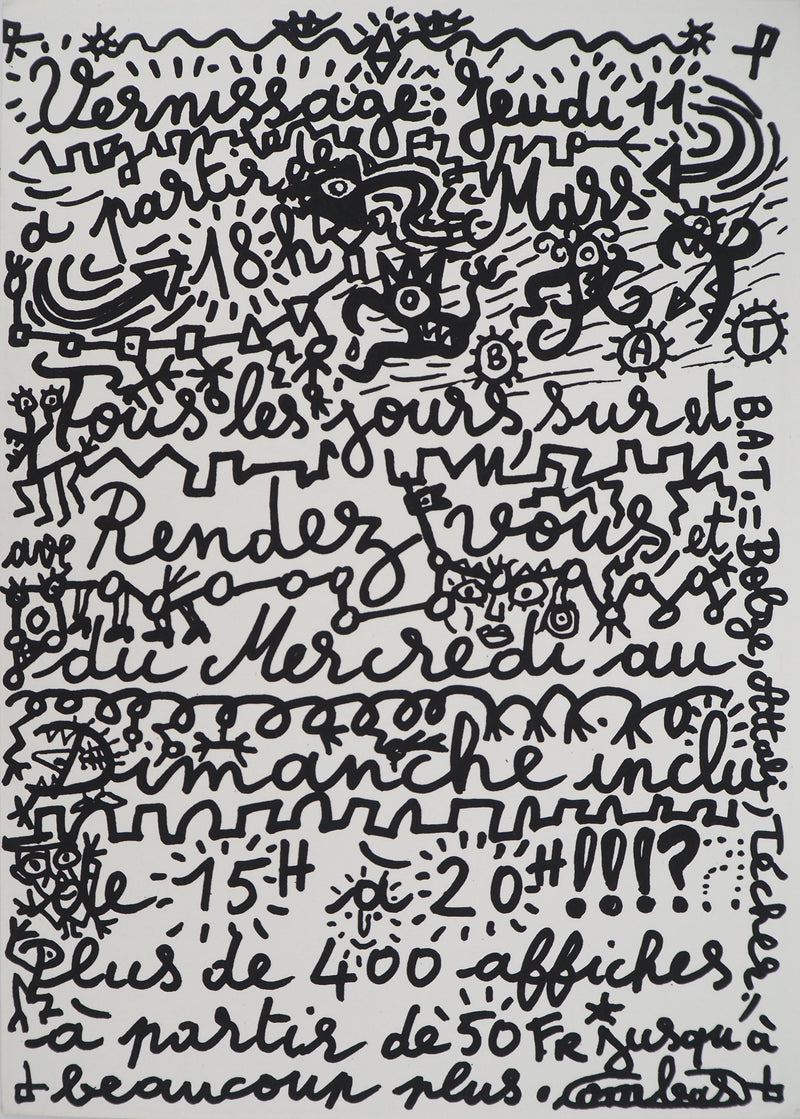 Vernissage: Jeudi 11
à partir de Mars
18h
B A T
Tous les jours, sur et
Rendez vous, et
du Mercredi au
Dimanche inclus
de 15H à 20H !!!?
Plus de 400 affiches
à partir de 50 FR * jusqu'à
beaucoup plus.
Combas
B.A.T. =